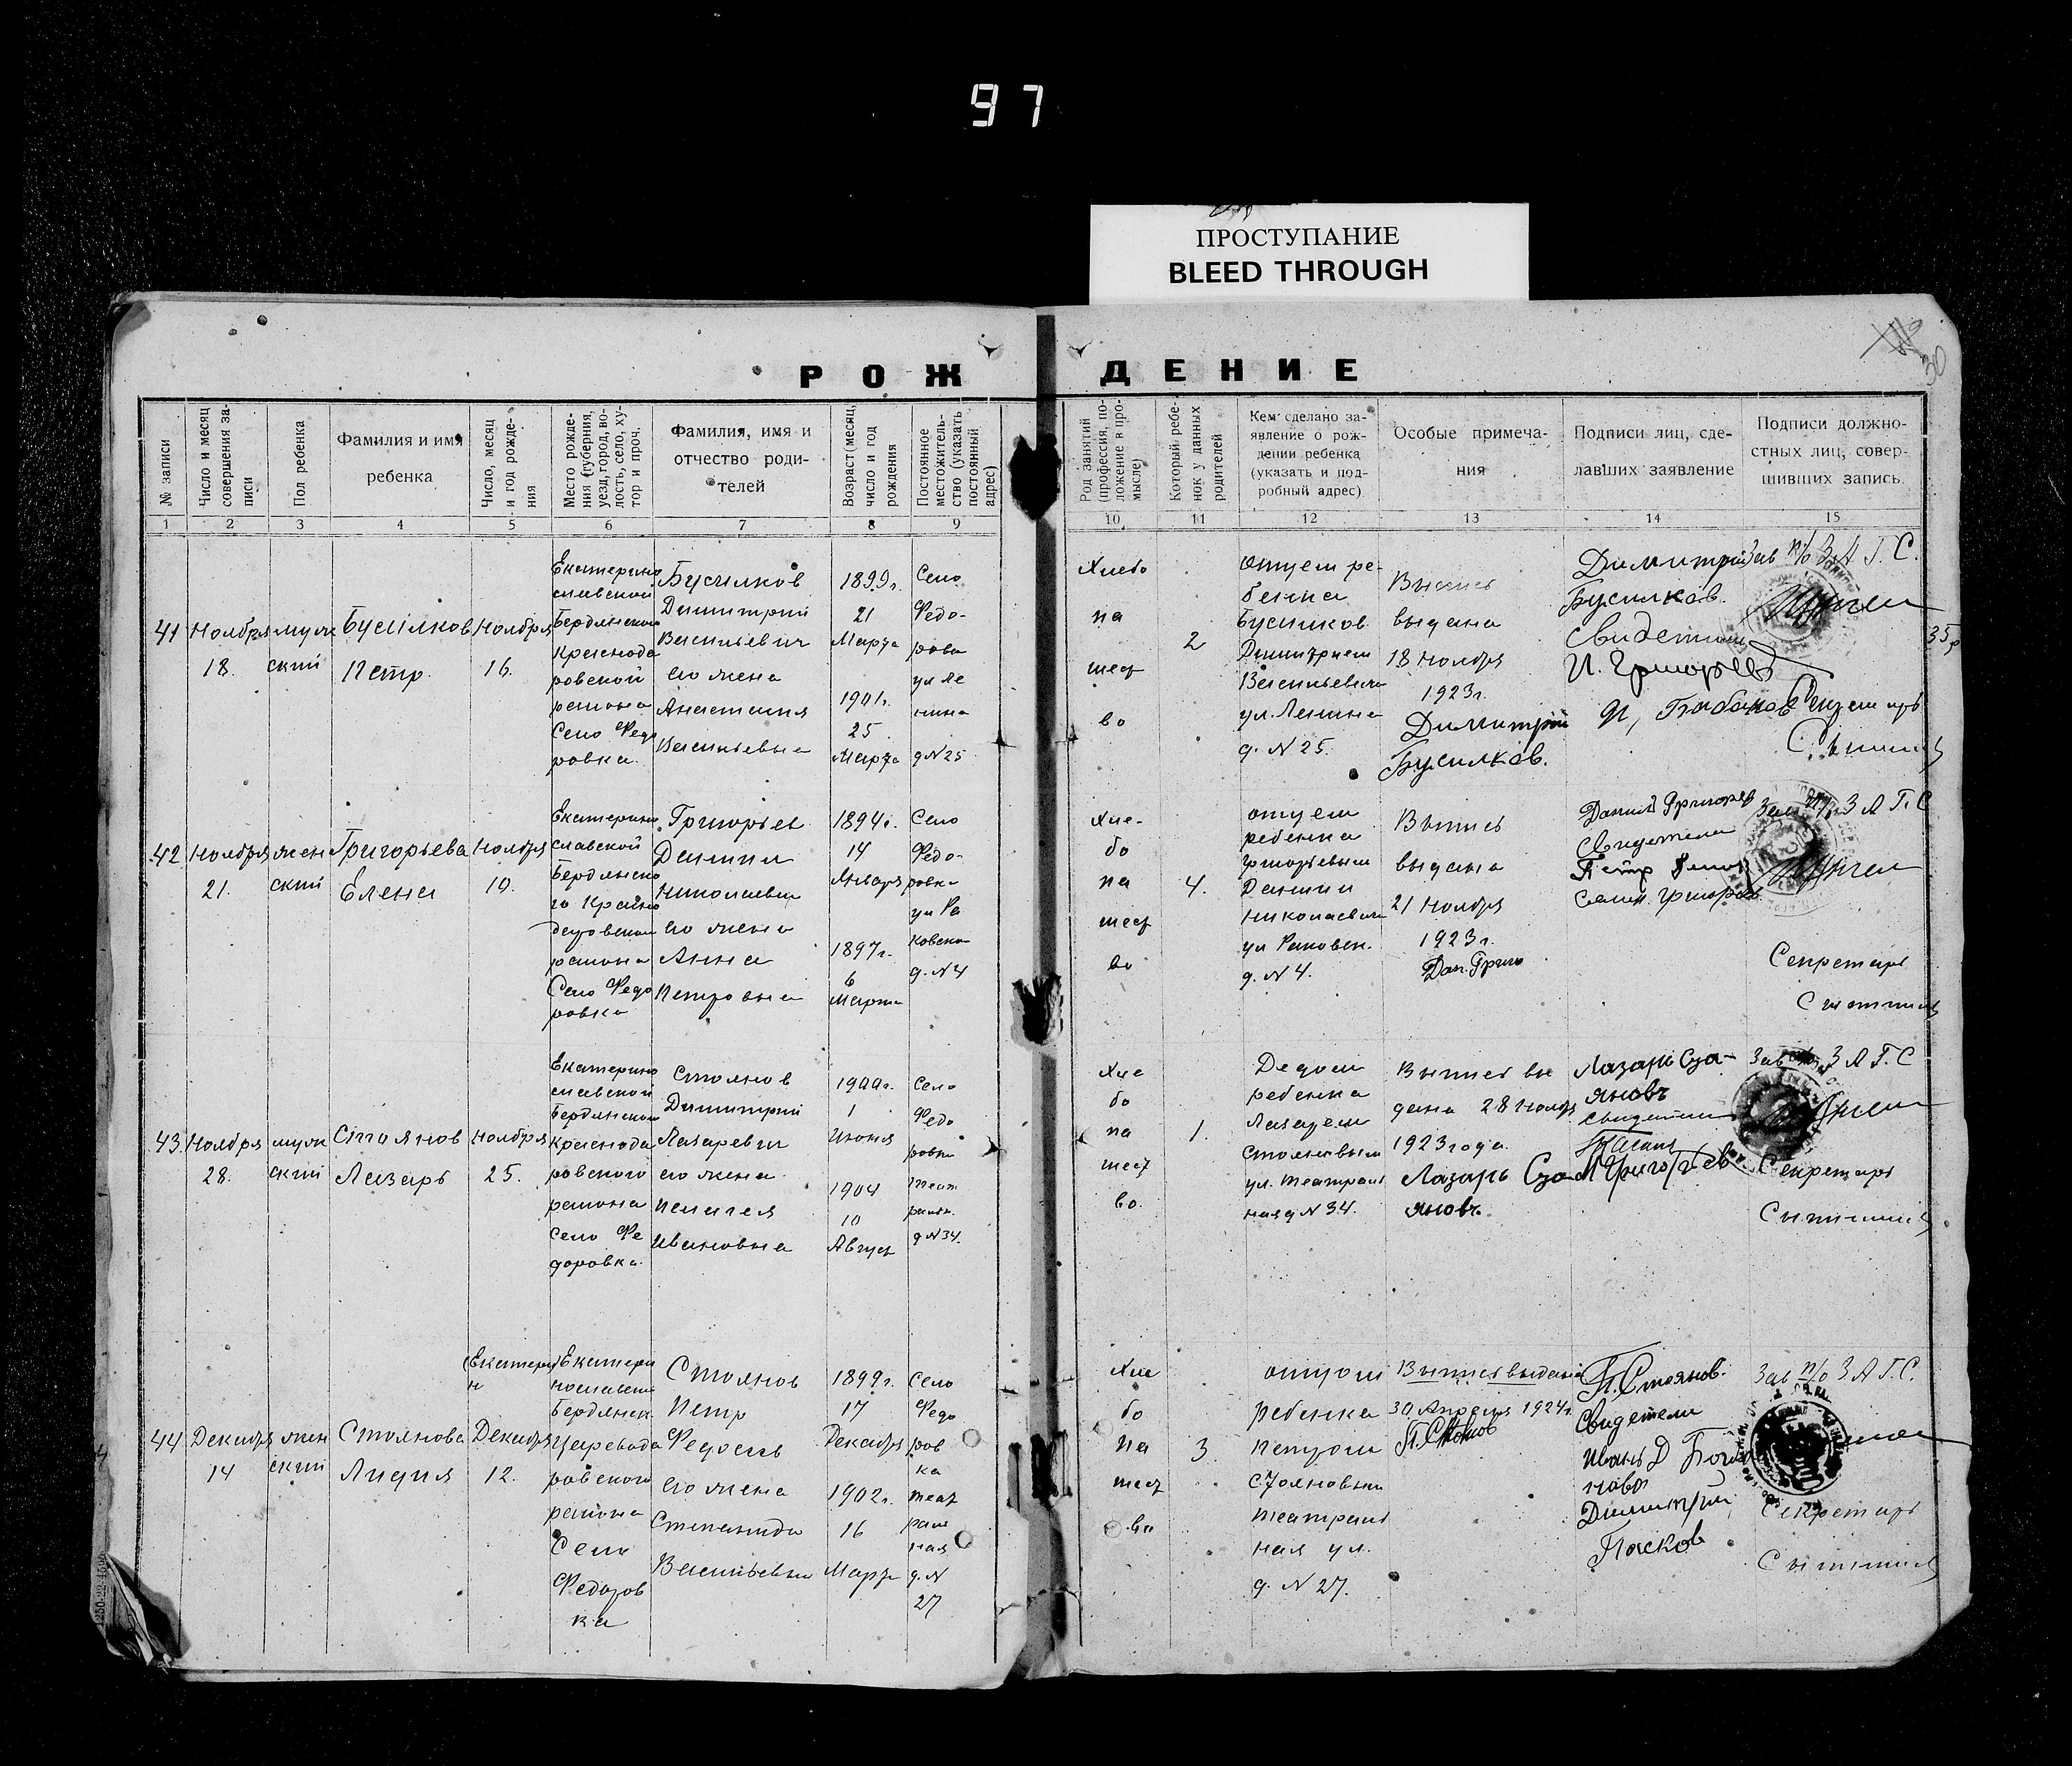 97
ПРОСТУПАНИЕ
BLEED THROUGH
30
РОЖДЕНИЕ
№ записи
Число и месяц совершения записи
Пол ребенка
Фамилия и имя
ребенка
Число, месяц и год рождения
Место рождения (губерния, уезд, город, волость, село, хутор и проч.
Фамилия, имя и
отчество роди-
телей
Возраст (месяц, число и год рождения
Постоянное местожительство (указать постоянный адрес)
Род занятий (профессия, положение в промысле)
Который ребенок у данных родителей
Кем сделано за-
явление о рож-
дении ребенка
(указать и под-
робный адрес)
Особые примеча-
ния
Подписи лиц, сде-
лавших заявление
Подписи должно-
стных лиц, совер-
шивших запись
1 2 3 4 5 6 7 8 9 10 11 12 13 14 15
41
Ноября
18.
мужс
ский
Бусилков
Петр.
Ноября
16.
Екатерино
славской
Бердянского
Краснода
ровской
района
Село Федо
ровка.
Бусилков
Димитрий
Васильевич
его жена
Анастасия
Васильевна
1899г.
21
Марта
1901г.
25
Марта
Село
Федо-
ровка
ул Ле
нина
д N25
Хлебо
па
шест
во
2
отцем ре-
бенка
Бусилков
Димитрием
Васильевича
ул. Ленина
д. N 25.
Выпись
выдана
18 Ноября
1923г.
Димитрий
Бусилков.
Димитрий
Бусилков
Свидетели
И. Григорьев
Зав п/о З.А Г. С.
Секретарь
35
42
Ноября
21.
жен
ский
Григорьева
Елена
Ноября
19.
Екатерино
славской
Бердянско
го
района
Село Федо
ровка
Григорьев
Даниил
Николаевич
его жена
Анна
Петровна
1894г.
14
Января
1897г.
6
Марта
Село
Федо-
ровка
ул Ра
ковска
д. N4
Хле-
бо
па
шест
во
4.
отцем
ребенка
Григорьевым
Даниил
Николаевич
ул Раковск.
д. N 4.
Выпись
выдана
21 Ноября
1923г.
Дан. Григо
Данил Григорев
Свидетели
Петр
Семен Григорьев
Зав п/о З А Г. С
Секретарь
43.
Ноября
28.
мужс
ский
Стоянов
Лазарь
Ноября
25.
Екатерино
славской
Бердянского
Краснода
ровского
района
село Фе
доровка.
Стоянов
Димитрий
Лазаревич
его жена
Пелагея
Ивановна
1900г.
1
Июня
1904
10
Август
Село
Федо
ровка
Теат
ральн.
д N34.
Хле
бо
па
шест
во.
1.
Дедом
ребенка
Лазарем
Стояновым
ул. Театраль
ная д N 34.
Выпись вы
дана 28 Ноября
1923 года.
Лазарь Сто
яновъ
Лазарь Сто-
яновъ
Свидетели
Григорьев
Зав п/о З А Г. С
Секретарь
44
Декабря
14
жен
ский
Стоянова
Лидия
Декабря
12.
(Екатери
н
Екатери
нославской
Бердянск.
Царевода
ровского
района
Село
Федоров
ка
Стоянов
Петр
Федосьев
его жена
Степанида
Васильевна
1899г.
17
Декабря
1902г.
16
Марта
Село
Федо
ров
ка
теат
раль
ная
д. N
27
Хле
бо
па
шест
во
3
отцом
ребенка
Петром
Стояновым
Театраль
ная ул.
д. N 27.
Выпись выдана
30 Апреля 1924г.
П. Стоянов
П. Стоянов.
Свидетели
Иван Д
Димитрий
Пасков
Зав п/о З А Г. С.
Секретарь